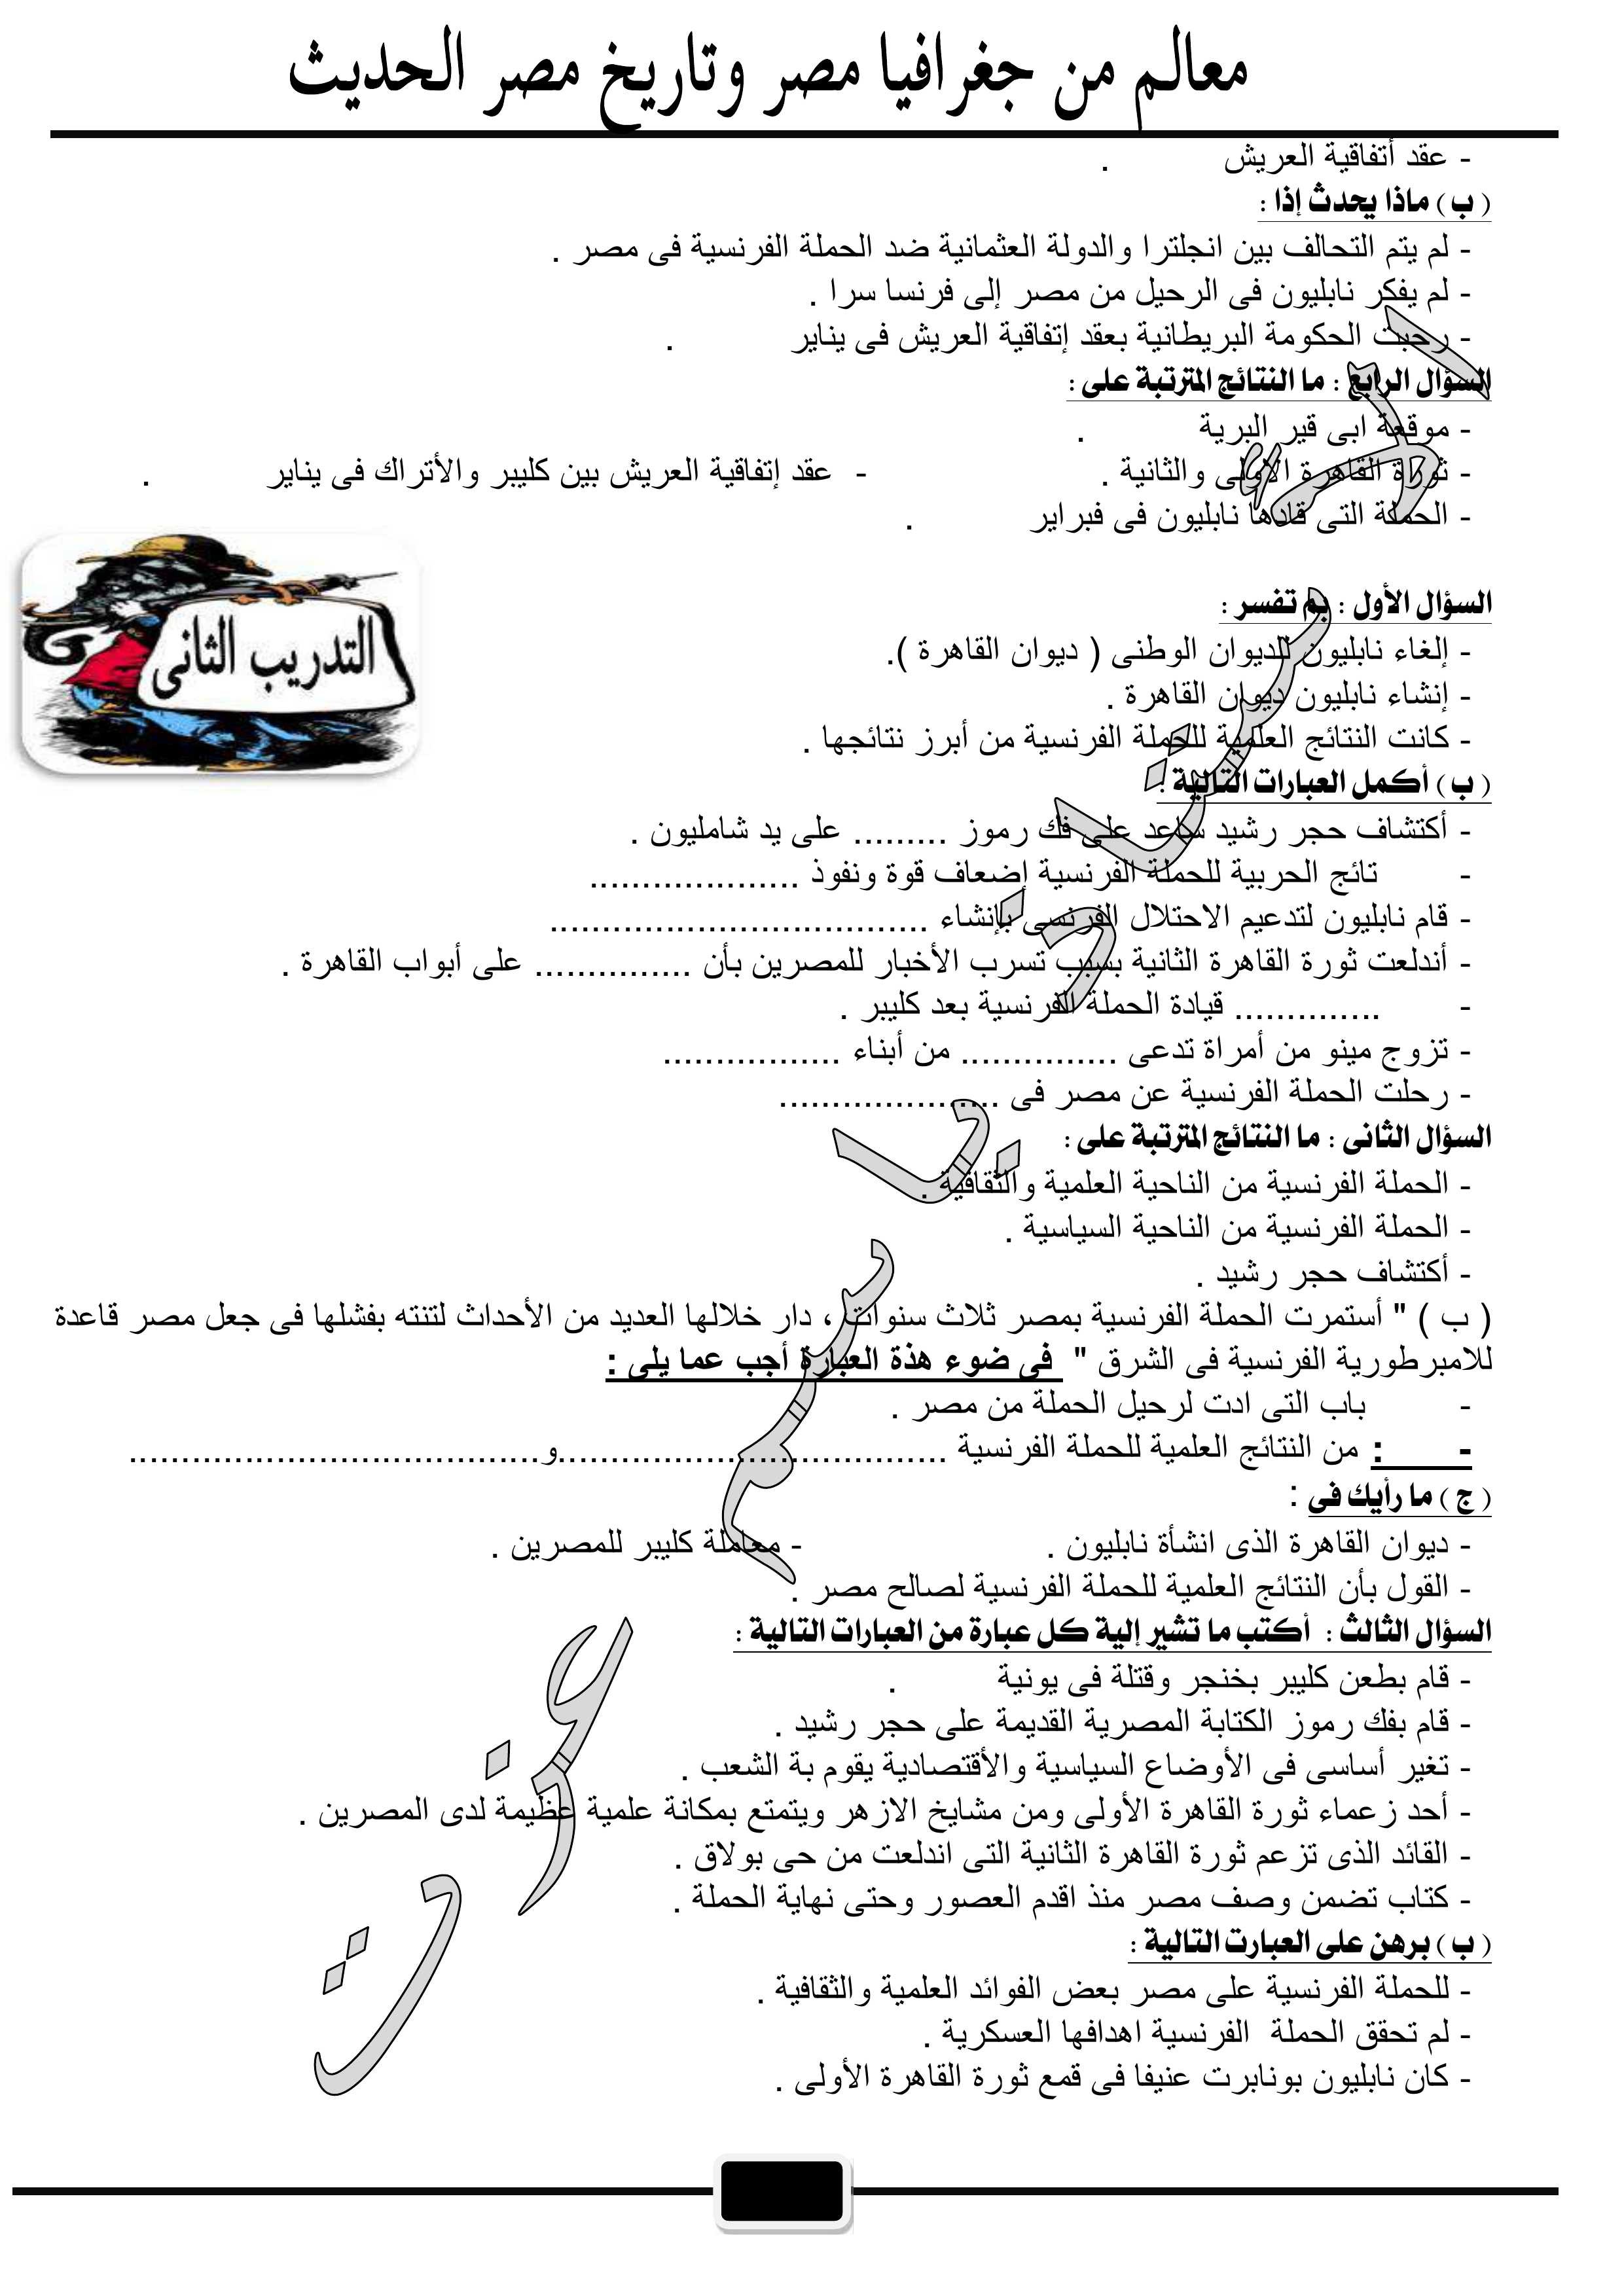 معالم من جغرافيا مصر وتاريخ مصر الحديث
- عقد أتفاقية العريش .
( ب ) ماذا يحدث إذا :
- لم يتم التحالف بين انجلترا والدولة العثمانية ضد الحملة الفرنسية فى مصر .
- لم يفكر نابليون فى الرحيل من مصر إلى فرنسا سرا .
- رحبت الحكومة البريطانية بعقد إتفاقية العريش فى يناير .
السؤال الرابع : ما النتائج المترتبة على :
- موقعة ابى قير البرية .
- ثورة القاهرة الاولى والثانية . - عقد إتفاقية العريش بين كليبر والأتراك فى يناير .
- الحملة التى قادها نابليون فى فبراير .
التدريب الثانى
السؤال الأول : بم تفسر :
- إلغاء نابليون للديوان الوطنى ( ديوان القاهرة ).
- إنشاء نابليون ديوان القاهرة .
- كانت النتائج العلمية للحملة الفرنسية من أبرز نتائجها .
( ب ) أكمل العبارات التالية :
- أكتشاف حجر رشيد ساعد على فك رموز ......... على يد شامليون .
- تائج الحربية للحملة الفرنسية إضعاف قوة ونفوذ ....................
- قام نابليون لتدعيم الاحتلال الفرنسى بإنشاء ....................................
- أندلعت ثورة القاهرة الثانية بسبب تسرب الأخبار للمصرين بأن ............... على أبواب القاهرة .
- .............. قيادة الحملة الفرنسية بعد كليبر .
- تزوج مينو من أمراة تدعى ............... من أبناء .................
- رحلت الحملة الفرنسية عن مصر فى .....................
السؤال الثانى : ما النتائج المترتبة على :
- الحملة الفرنسية من الناحية العلمية والثقافية .
- الحملة الفرنسية من الناحية السياسية .
- أكتشاف حجر رشيد .
( ب ) " أستمرت الحملة الفرنسية بمصر ثلاث سنوات ، دار خلالها العديد من الأحداث لتنته بفشلها فى جعل مصر قاعدة
للامبرطورية الفرنسية فى الشرق " فى ضوء هذة العبارة أجب عما يلى :
- باب التى ادت لرحيل الحملة من مصر .
- : من النتائج العلمية للحملة الفرنسية .....................................و.......................................
( ج ) ما رأيك فى :
- ديوان القاهرة الذى انشأة نابليون . - معاملة كليبر للمصرين .
- القول بأن النتائج العلمية للحملة الفرنسية لصالح مصر .
السؤال الثالث : أكتب ما تشير إلية كل عبارة من العبارات التالية :
- قام بطعن كليبر بخنجر وقتلة فى يونية .
- قام بفك رموز الكتابة المصرية القديمة على حجر رشيد .
- تغير أساسى فى الأوضاع السياسية والأقتصادية يقوم بة الشعب .
- أحد زعماء ثورة القاهرة الأولى ومن مشايخ الازهر ويتمتع بمكانة علمية عظيمة لدى المصرين .
- القائد الذى تزعم ثورة القاهرة الثانية التى اندلعت من حى بولاق .
- كتاب تضمن وصف مصر منذ اقدم العصور وحتى نهاية الحملة .
( ب ) برهن على العبارت التالية :
- للحملة الفرنسية على مصر بعض الفوائد العلمية والثقافية .
- لم تحقق الحملة الفرنسية اهدافها العسكرية .
- كان نابليون بونابرت عنيفا فى قمع ثورة القاهرة الأولى .